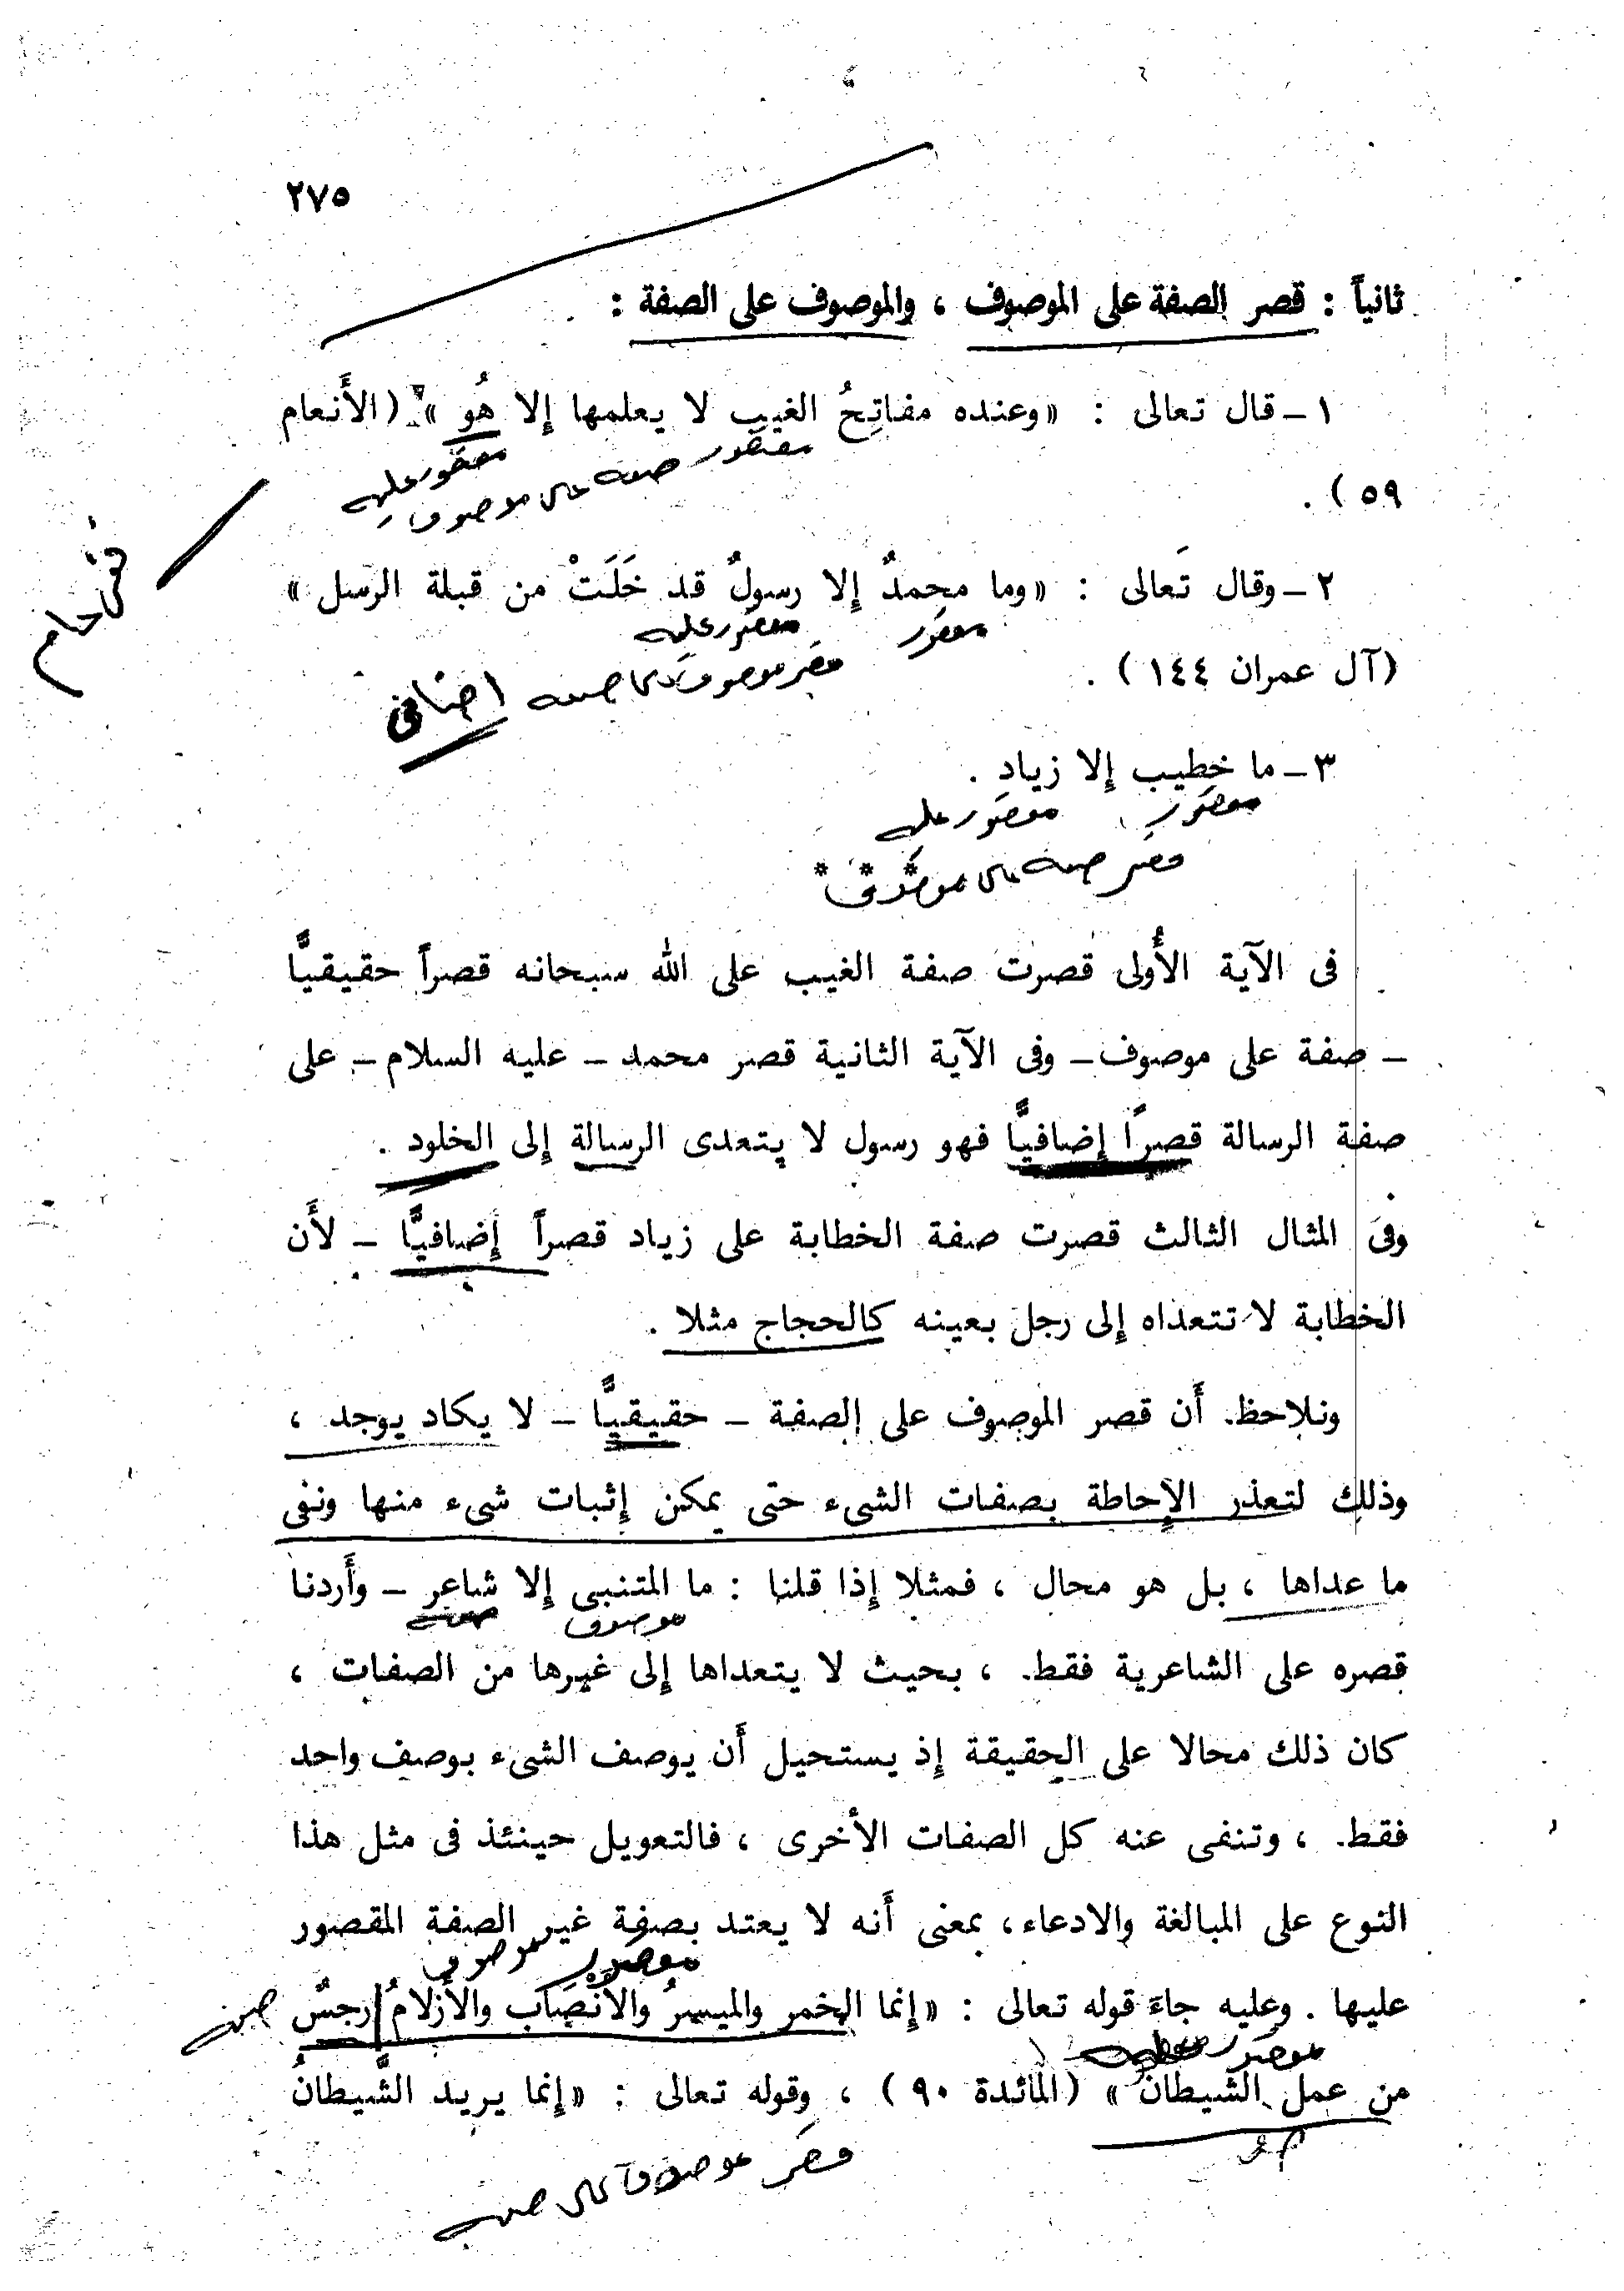 ٢٧٥
ثانياً : قصر الصفة على الموصوف ، والموصوف على الصفة :
١ – قال تعالى : «وعنده مفاتِحُ الغيب لا يعلمها إلا هُو» (الأَنعام
مقصور
مقصور عليه
صفة على موصوف
٥٩ ) .
هام
٢ – وقال تَعالى : «وما محمدٌ إلا رسولٌ قد خَلَتْ من قبلة الرسل»
مقصور
مقصور عليه
(آل عمران ١٤٤) .
قصر موصوف على صفة اضافى
٣ – ما خطيب إلا زياد .
مقصور
مقصور عليه
قصر صفة على موصوف
* * *
فى الآية الأُولى قصرت صفة الغيب على الله سبحانه قصراً حقيقيًّا
– صفة على موصوف – وفى الآية الثانية قصر محمد – عليه السلام – على
صفة الرسالة قصرًا إضافيًّا فهو رسول لا يتعدى الرسالة إلى الخلود .
وفى المثال الثالث قصرت صفة الخطابة على زياد قصراً إضافيًّا – لأَن
الخطابة لا تتعداه إلى رجل بعينه كالحجاج مثلا .
ونلاحظ. أَن قصر الموصوف على الصفة – حقيقيًّا – لا يكاد يوجد ،
وذلك لتعذر الإحاطة بصفات الشىء حتى يمكن إثبات شىء منها ونفى
ما عداها ، بل هو محال ، فمثلا إذا قلنا : ما المتنبى إلا شاعر – وأَردنا
موصوف
صفة
قصره على الشاعرية فقط. ، بحيث لا يتعداها إلى غيرها من الصفات ،
كان ذلك محالا على الحقيقة إذ يستحيل أَن يوصف الشىء بوصف واحد
فقط. ، وتنفى عنه كل الصفات الأخرى ، فالتعويل حينئذ فى مثل هذا
النوع على المبالغة والادعاء، بمعنى أَنه لا يعتد بصفة غير الصفة المقصور
مقصور
موصوف
عليها . وعليه جاءَ قوله تعالى : «إنما الخمر والميسرُ والأَنْصَاب والأَزلامُ رجسٌ
صفة
مقصور عليه
من عمل الشيطان» (المائدة ٩٠) ، وقوله تعالى : «إنما يريد الشَّيطانُ
قصر موصوف على صفة